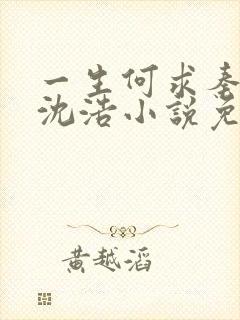 一生何求秦
沈浩小說免
黃越滔